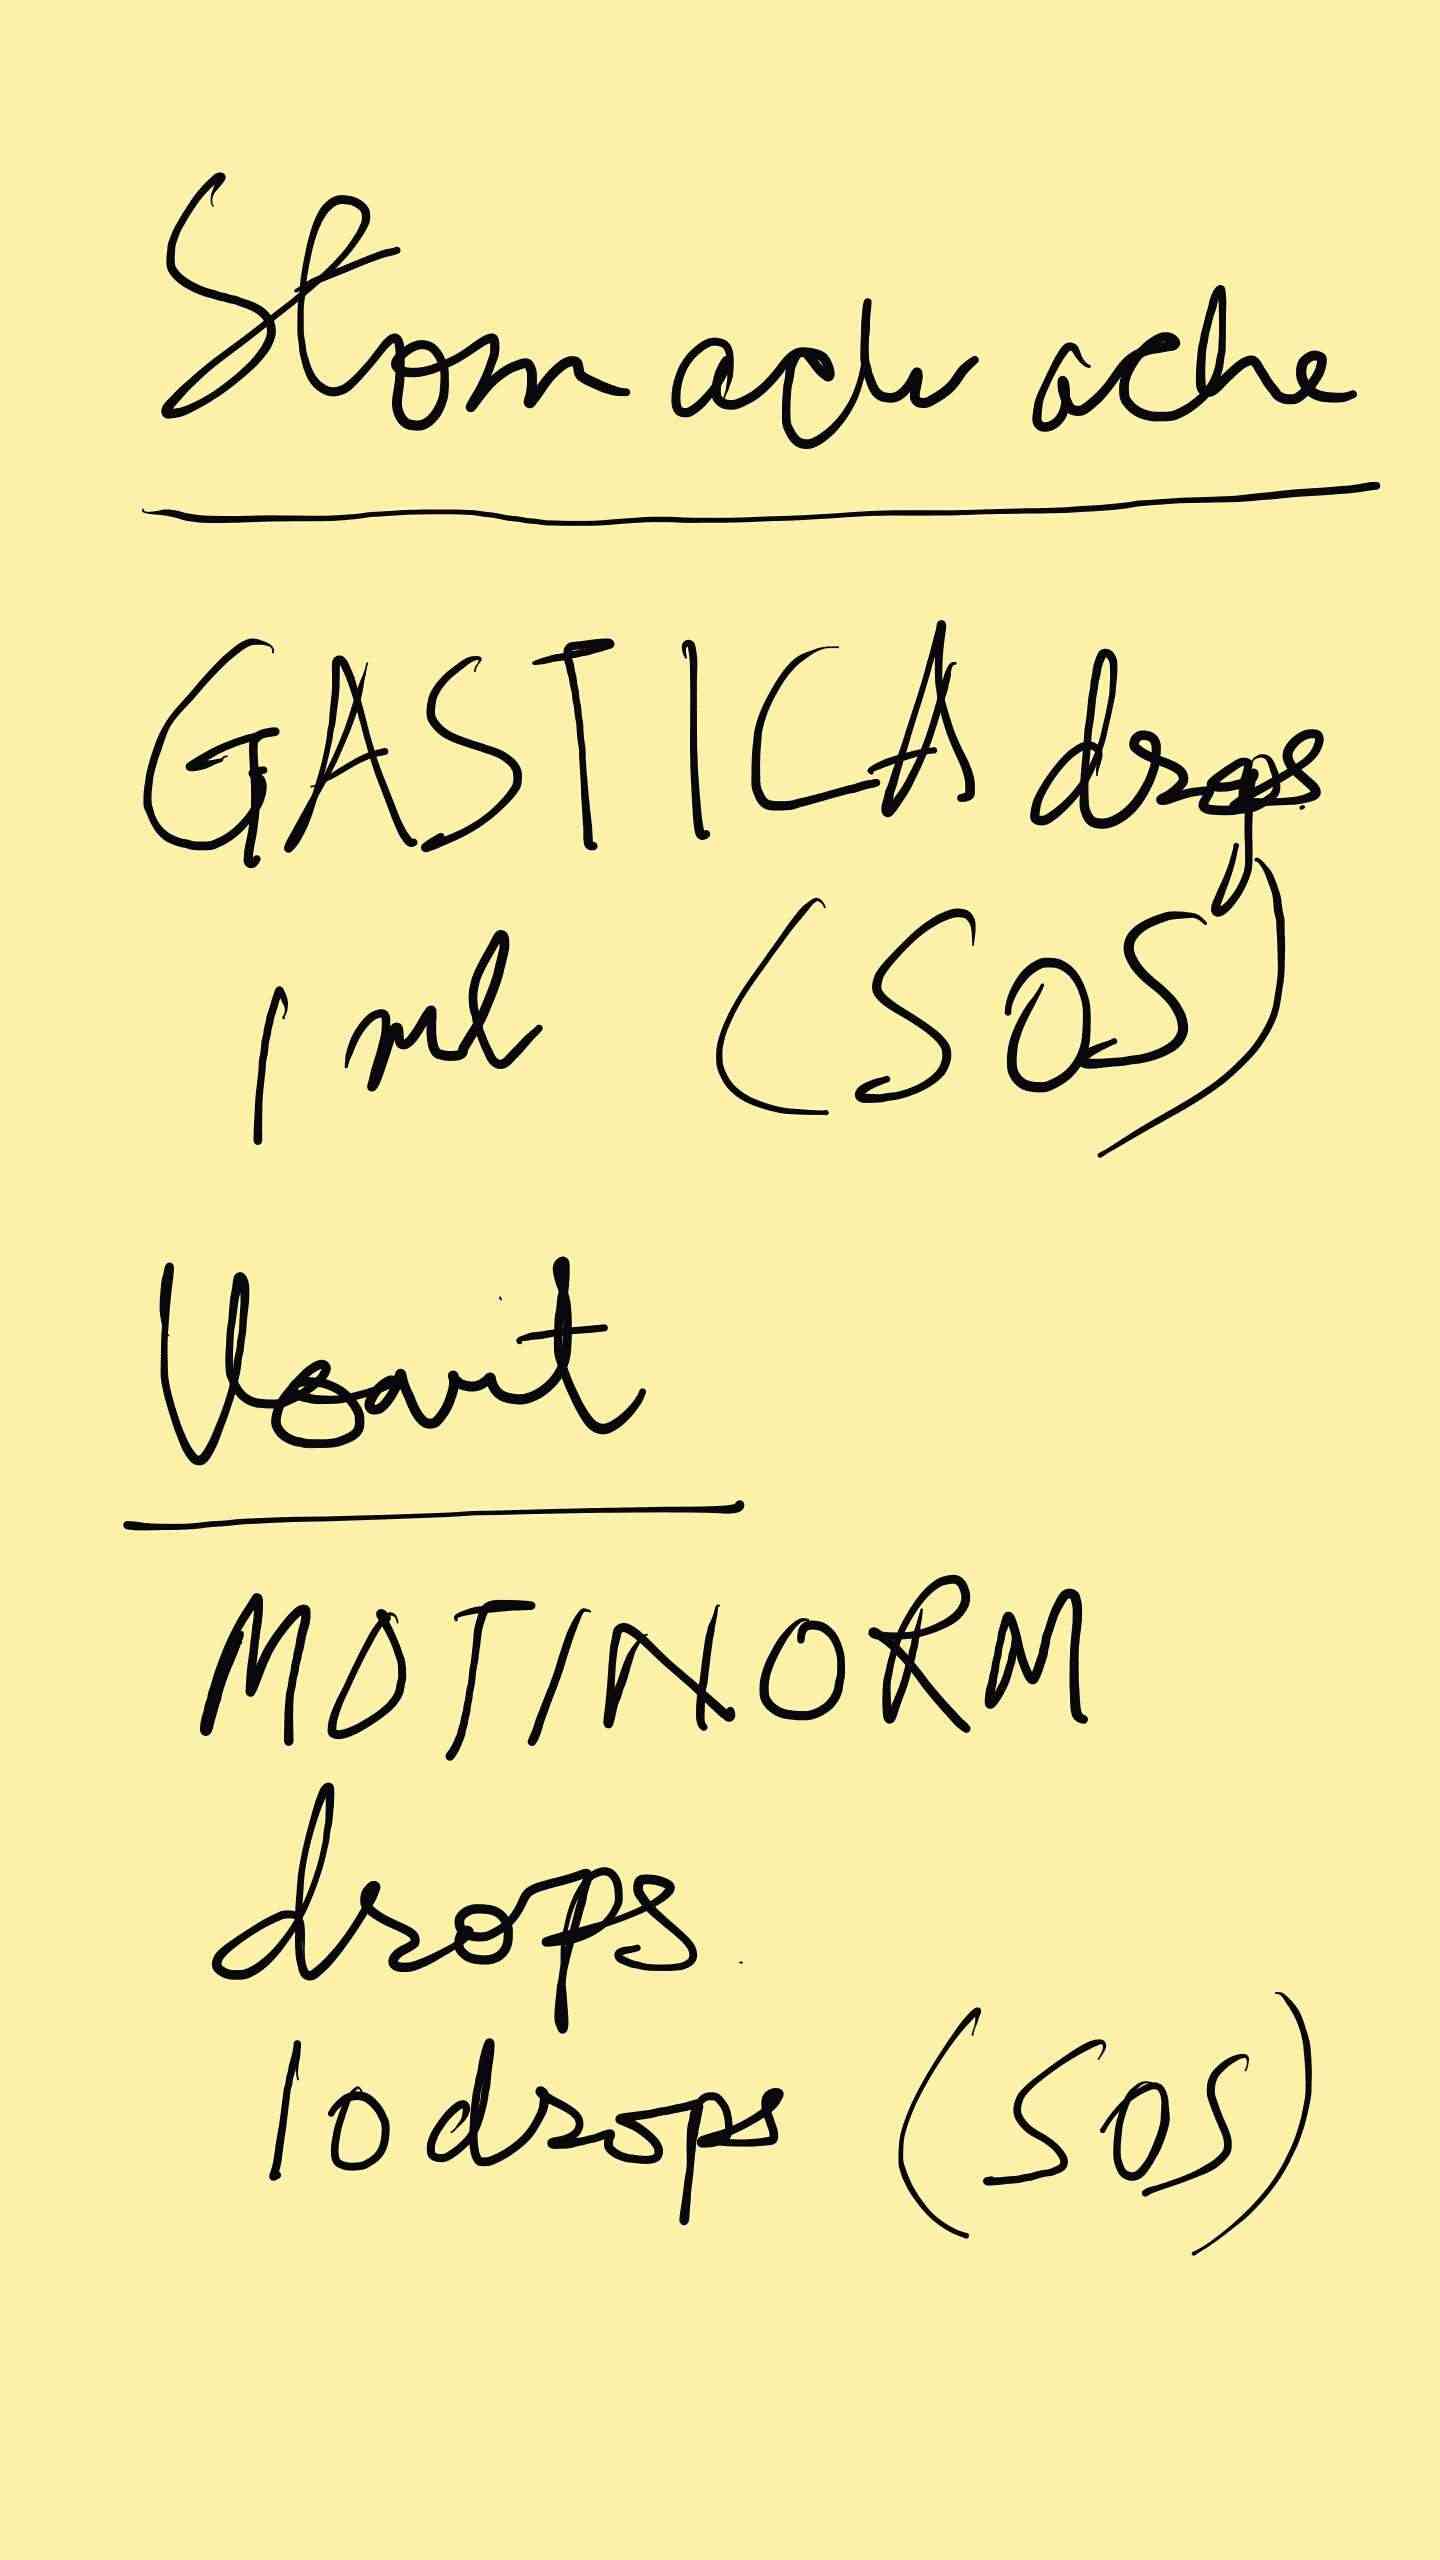 Stomach ache
GASTICA drops
1 ml (SOS)
Vomit
MOTINORM
drops
10 drops (SOS)